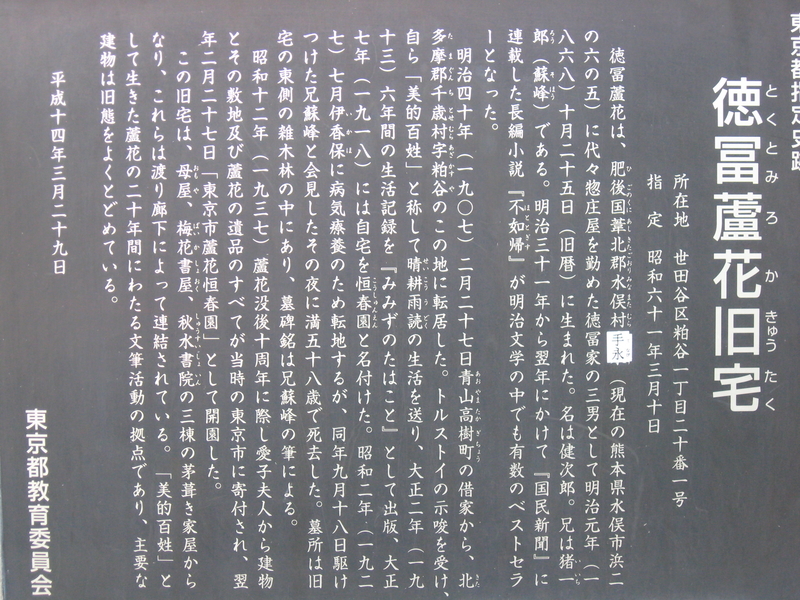 東京都指定史跡
徳冨蘆花旧宅
とくとみろかきゅうたく
所在地 世田谷区粕谷一丁目二十番一号
指定 昭和六十一年三月十日
徳冨蘆花は、肥後国葦北郡水俣村手永（現在の熊本県水俣市浜二
の六の五）に代々惣庄屋を勤めた徳冨家の三男として明治元年（一
八六八）十月二十五日（旧暦）に生まれた。名は健次郎。兄は猪一
郎（蘇峰）である。明治三十一年から翌年にかけて『国民新聞』に
連載した長編小説『不如帰』が明治文学の中でも有数のベストセラ
ーとなった。
明治四十年（一九〇七）二月二十七日青山高樹町の借家から、北
多摩郡千歳村字粕谷のこの地に転居した。トルストイの示唆を受け、
自ら「美的百姓」と称して晴耕雨読の生活を送り、大正二年（一九
十三）六年間の生活記録を『みみずのたはこと』として出版、大正
七年（一九一八）には自宅を恒春園と名付けた。昭和二年（一九二
七）七月伊香保に病気療養のため転地するが、同年九月十八日駆け
つけた兄蘇峰と会見したその夜に満五十八歳で死去した。墓所は旧
宅の東側の雑木林の中にあり、墓碑銘は兄蘇峰の筆による。
昭和十二年（一九三七）蘆花没後十周年に際し愛子夫人から建物
とその敷地及び蘆花の遺品のすべてが当時の東京市に寄付され、翌
年二月二十七日「東京市蘆花恒春園」として開園した。
この旧宅は、母屋、梅花書屋、秋水書院の三棟の茅葺き家屋から
なり、これらは渡り廊下によって連結されている。「美的百姓」と
して生きた蘆花の二十年間にわたる文筆活動の拠点であり、主要な
建物は旧態をよくとどめている。
平成十四年三月二十九日
東京都教育委員会